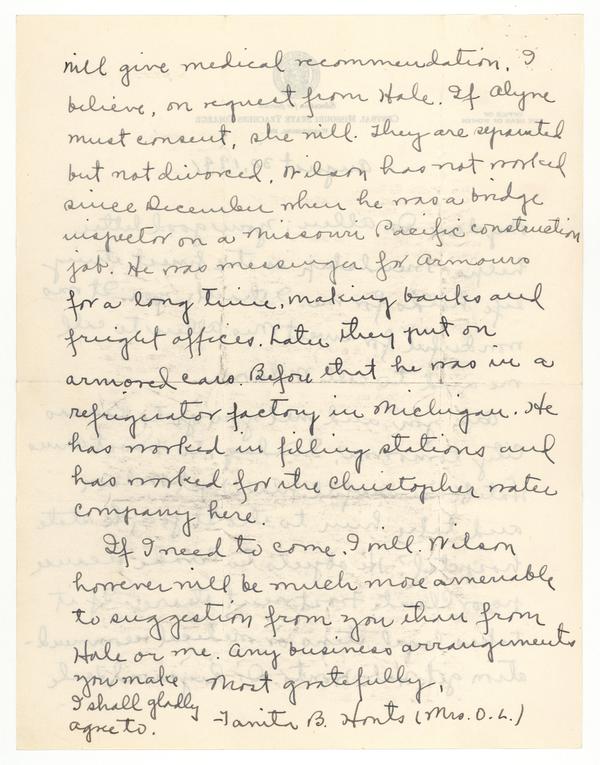 will give medical recommendation, I
believe, on request from Hale. If Alyne
must consent, she will. They are separated
but not divorced. Wilson has not worked
since December when he was a bridge
inspector on a Missouri Pacific construction
job. He was messenger for Armours
for a long time, making banks and
freight offices. Later they put on
armored cars. Before that he was in a
refrigerator factory in Michigan. He
has worked in filling stations and
has worked for the Christopher water
company here.
If I need to come, I will. Wilson
however will be much more amenable
to suggestion from you than from
Hale or me. Any business arrangements
you make,
I shall gladly
agree to.
Most gratefully,
Tanita B. Honts (Mrs. O. L.)